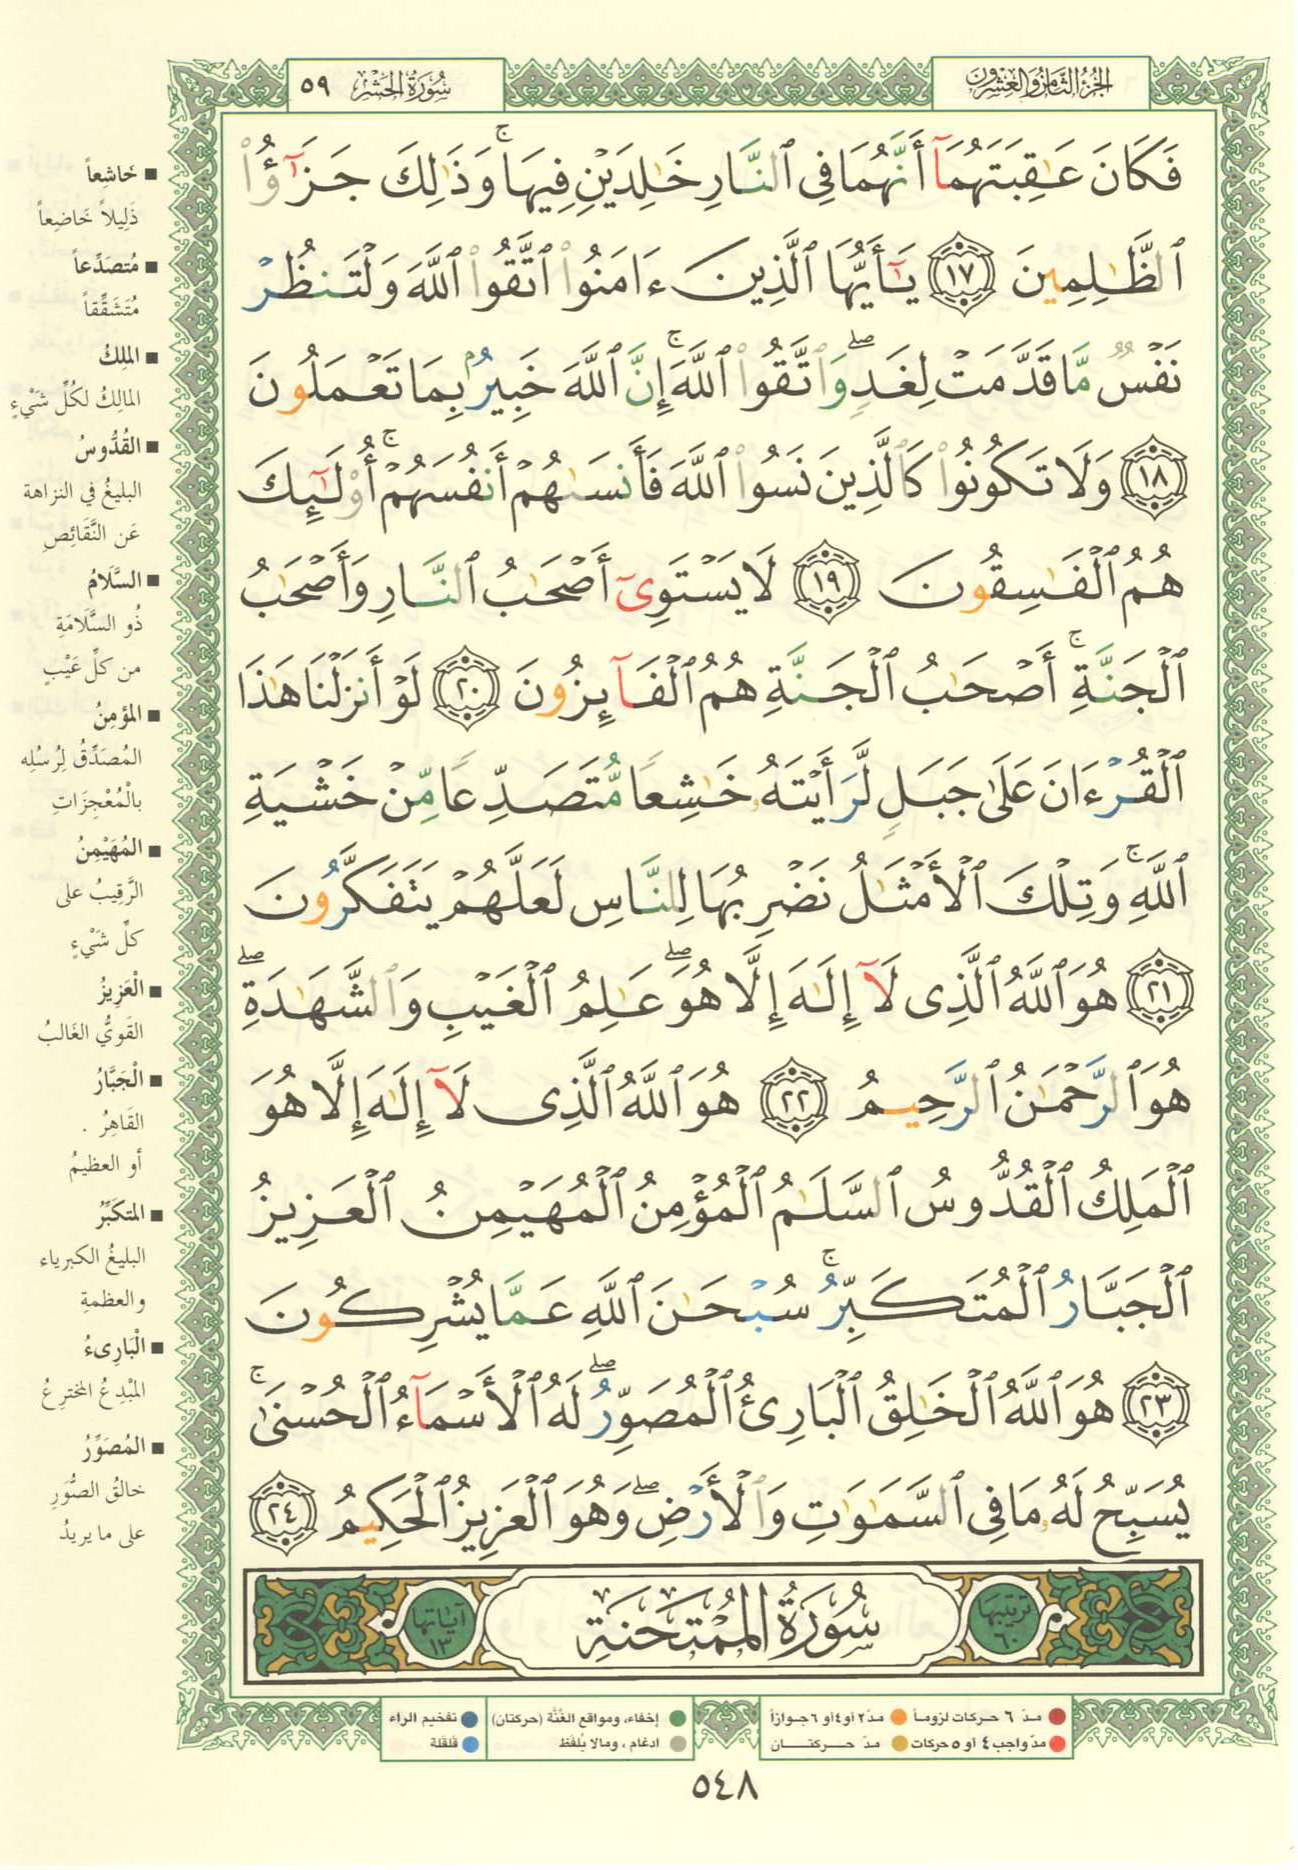 الجزء الثامن والعشرون
سورة الحشر ٥٩
فَكَانَ عَٰقِبَتَهُمَآ أَنَّهُمَا فِى ٱلنَّارِ خَٰلِدَيْنِ فِيهَا ۚ وَذَٰلِكَ جَزَٰٓؤُا۟
ٱلظَّٰلِمِينَ ١٧ يَٰٓأَيُّهَا ٱلَّذِينَ ءَامَنُوا۟ ٱتَّقُوا۟ ٱللَّهَ وَلْتَنظُرْ
نَفْسٌ مَّا قَدَّمَتْ لِغَدٍ ۖ وَٱتَّقُوا۟ ٱللَّهَ ۚ إِنَّ ٱللَّهَ خَبِيرٌۢ بِمَا تَعْمَلُونَ
١٨ وَلَا تَكُونُوا۟ كَٱلَّذِينَ نَسُوا۟ ٱللَّهَ فَأَنسَىٰهُمْ أَنفُسَهُمْ ۚ أُو۟لَٰٓئِكَ
هُمُ ٱلْفَٰسِقُونَ ١٩ لَا يَسْتَوِىٓ أَصْحَٰبُ ٱلنَّارِ وَأَصْحَٰبُ
ٱلْجَنَّةِ ۚ أَصْحَٰبُ ٱلْجَنَّةِ هُمُ ٱلْفَآئِزُونَ ٢٠ لَوْ أَنزَلْنَا هَٰذَا
ٱلْقُرْءَانَ عَلَىٰ جَبَلٍ لَّرَأَيْتَهُۥ خَٰشِعًا مُّتَصَدِّعًا مِّنْ خَشْيَةِ
ٱللَّهِ ۚ وَتِلْكَ ٱلْأَمْثَٰلُ نَضْرِبُهَا لِلنَّاسِ لَعَلَّهُمْ يَتَفَكَّرُونَ
٢١ هُوَ ٱللَّهُ ٱلَّذِى لَآ إِلَٰهَ إِلَّا هُوَ ۖ عَٰلِمُ ٱلْغَيْبِ وَٱلشَّهَٰدَةِ ۖ
هُوَ ٱلرَّحْمَٰنُ ٱلرَّحِيمُ ٢٢ هُوَ ٱللَّهُ ٱلَّذِى لَآ إِلَٰهَ إِلَّا هُوَ
ٱلْمَلِكُ ٱلْقُدُّوسُ ٱلسَّلَٰمُ ٱلْمُؤْمِنُ ٱلْمُهَيْمِنُ ٱلْعَزِيزُ
ٱلْجَبَّارُ ٱلْمُتَكَبِّرُ ۚ سُبْحَٰنَ ٱللَّهِ عَمَّا يُشْرِكُونَ
٢٣ هُوَ ٱللَّهُ ٱلْخَٰلِقُ ٱلْبَارِئُ ٱلْمُصَوِّرُ ۖ لَهُ ٱلْأَسْمَآءُ ٱلْحُسْنَىٰ ۚ
يُسَبِّحُ لَهُۥ مَا فِى ٱلسَّمَٰوَٰتِ وَٱلْأَرْضِ ۖ وَهُوَ ٱلْعَزِيزُ ٱلْحَكِيمُ ٢٤
ترتيبها ٦٠
سُورَةُ المُمْتَحَنَةِ
آياتها ١٣
■ خَاشِعاً
ذَلِيلاً خَاضِعاً
■ مُتصَدِّعاً
مُتَشَقِّقاً
■ المَلِكُ
المالِكُ لكُلِّ شَيْءٍ
■ القُدُّوسُ
البليغُ في النزاهة
عَن النَّقَائِصِ
■ السَّلَامُ
ذُو السَّلامَةِ
من كلِّ عَيْبٍ
■ المؤمِنُ
المُصَدِّقُ لِرُسُلِه
بالْمُعْجِزَاتِ
■ المُهَيْمِنُ
الرَّقِيبُ على
كلِّ شَيْءٍ
■ الْعَزِيزُ
القَوِيُّ الغَالبُ
■ الْجَبَّارُ
القَاهِرُ .
أو العظيمُ
■ المتكَبِّرُ
البليغُ الكبرياء
والعظمةِ
■ الْبَارِىءُ
المُبْدِعُ المخترِعُ
■ المُصَوِّرُ
خالقُ الصُّوَرِ
على ما يريدُ
مدّ ٦ حركات لزوماً
مدّ ٢ أو ٤ أو ٦ جوازاً
مدّ واجب ٤ أو ٥ حركات
مدّ حركتان
إخفاء، ومواقع الغُنَّة (حركتان)
ادغام ، ومالا يُلفَظ
تفخيم الراء
قلقلة
٥٤٨